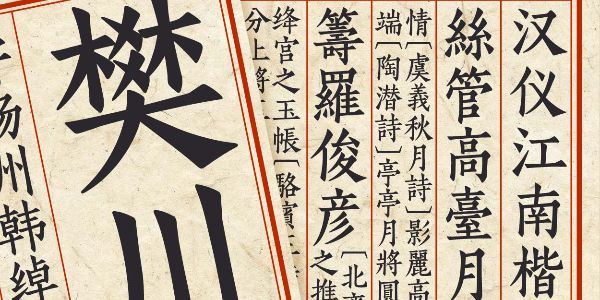 汉仪江南楷
絲管高臺月
情〔虞義秋月詩〕影麗高
端〔陶潜詩〕亭亭月將圓
籌羅俊彦
〔北
之推
絳宮之玉帳〔駱賓
分上將
樊川
扬州韩绰